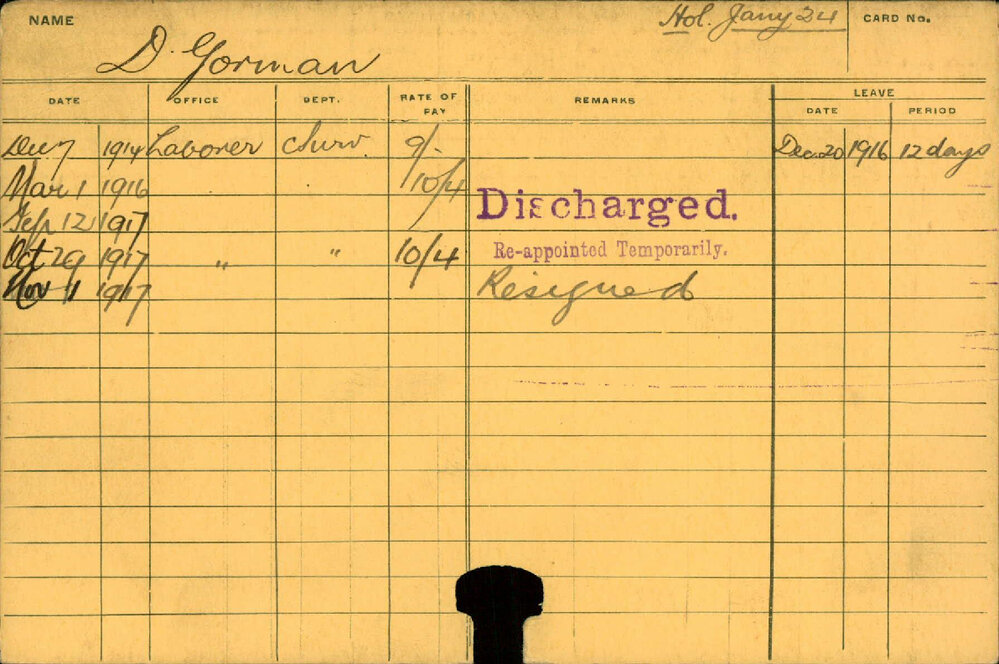 NAME
Hol. Jany 24
CARD No.
D. Gorman
DATE OFFICE DEPT. RATE OF PAY REMARKS LEAVE
DATE PERIOD
Dec 7 1914 Laborer Surv. 9/- Dec 20 1916 12 days
Mar 1 1916 10/4
Sep 12 1917 Discharged.
Oct 29 1917 " " 10/4 Re-appointed Temporarily.
Nov 1917 Resigned